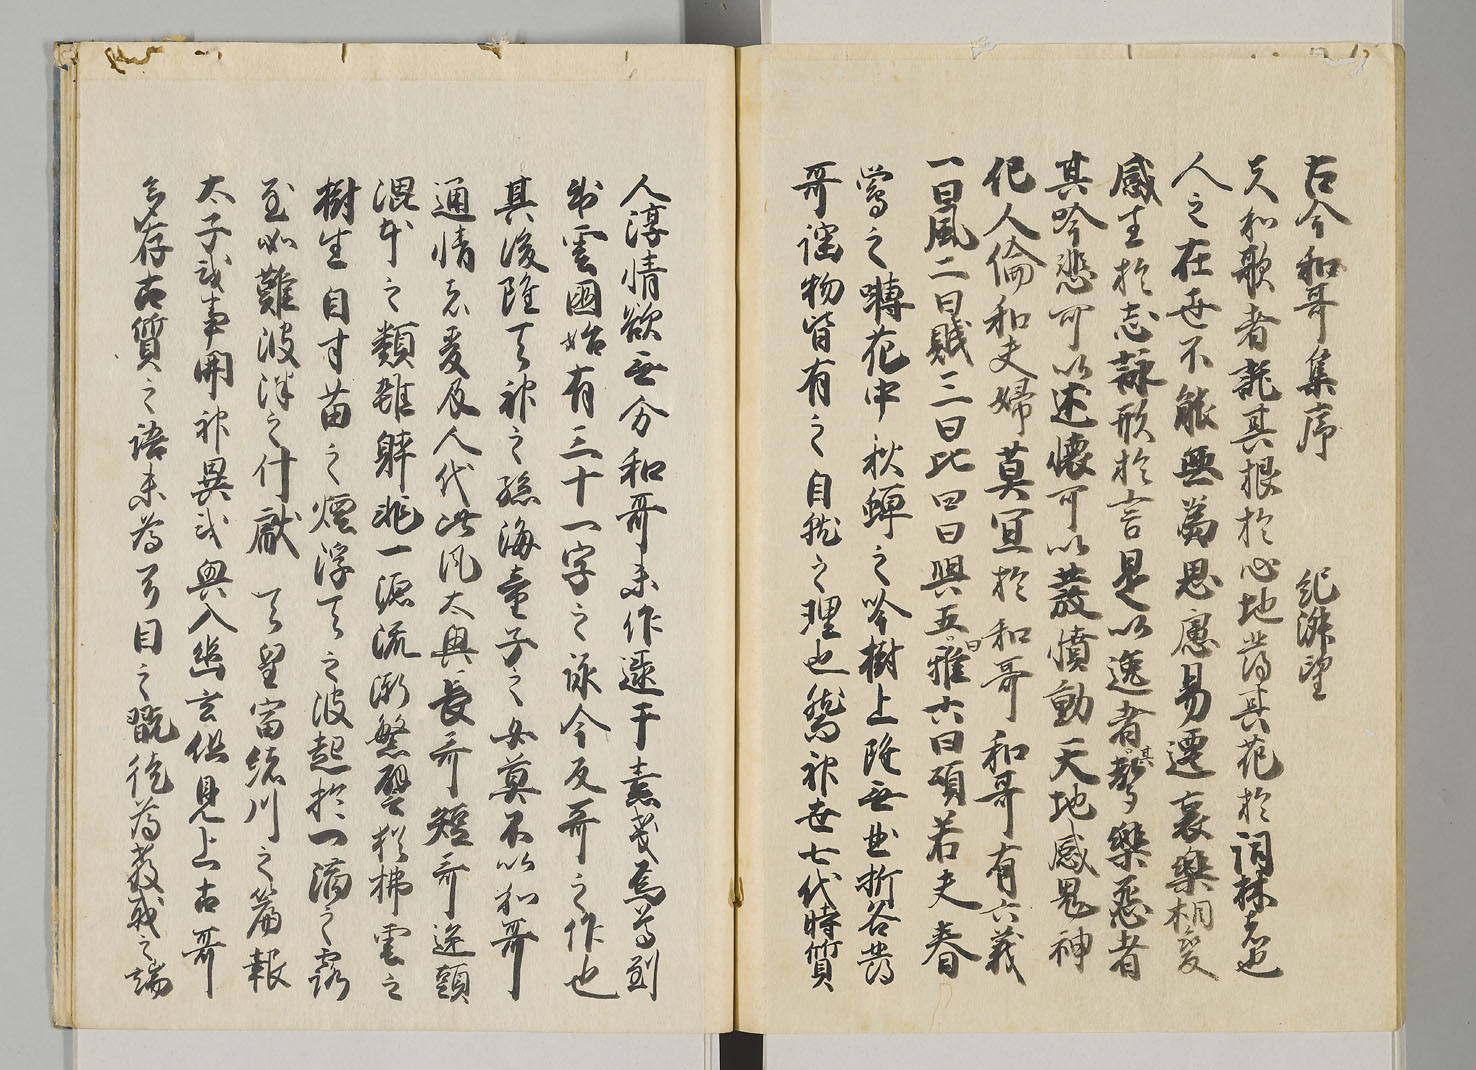 古今和哥集序　紀淑望
夫和歌者託其根於心地發其花於詞林者也
人之在世不能無為思慮易遷哀樂相變
感生於志詠形於言是以逸者其聲樂怨者
其吟悲可以述懷可以發憤動天地感鬼神
化人倫和夫婦莫宜於和哥和哥有六義
一曰風二曰賦三曰比四曰興五曰雅六曰頌若夫春
鶯之囀花中秋蟬之吟樹上雖無曲折各發
哥謡物皆有之自然之理也然而神世七代時質
人淳情欲無分和哥未作逮于素戔烏尊到
出雲國始有三十一字之詠今反哥之作也
其後雖天神之孫海童子之女莫不以和哥
通情者爰及人代此風大興長哥短哥旋頭
混本之類雜躰非一源流漸繁譬猶拂雲之
樹生自寸苗之煙浮天之波起於一滴之露
至如難波津之什獻　天皇富緒川之篇報
太子或事開神異或興入幽玄但見上古哥
多存古質之語未為耳目之翫徒為教戒之端